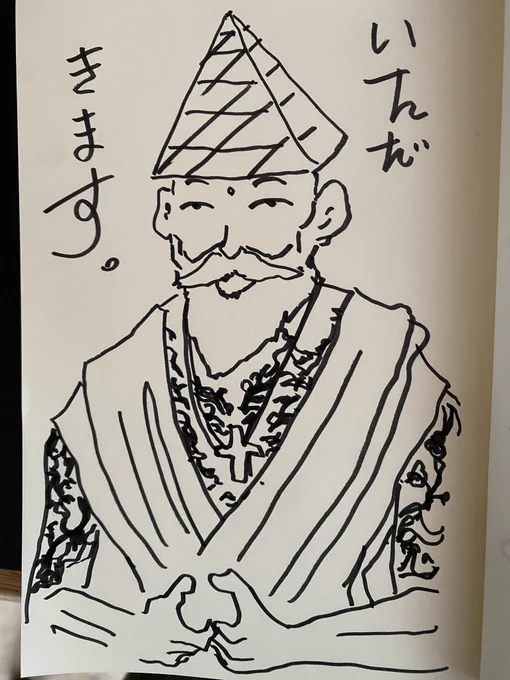 いただ
きます。